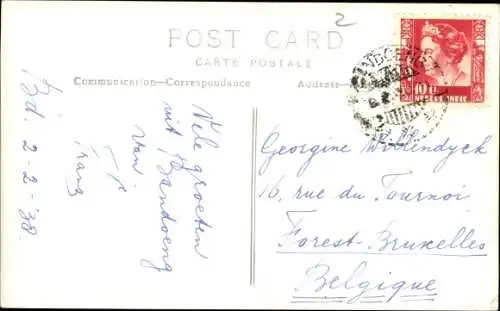 2
POST CARD
CARTE POSTALE
Communication—Correspondance
Address—
10 c
NEDERL. INDIE
Bd. 2-2-'38.
Vele groeten
uit Bandoeng
van
Frans
Georgine
16, rue du Tournoi
Forest-Bruxelles
Belgique